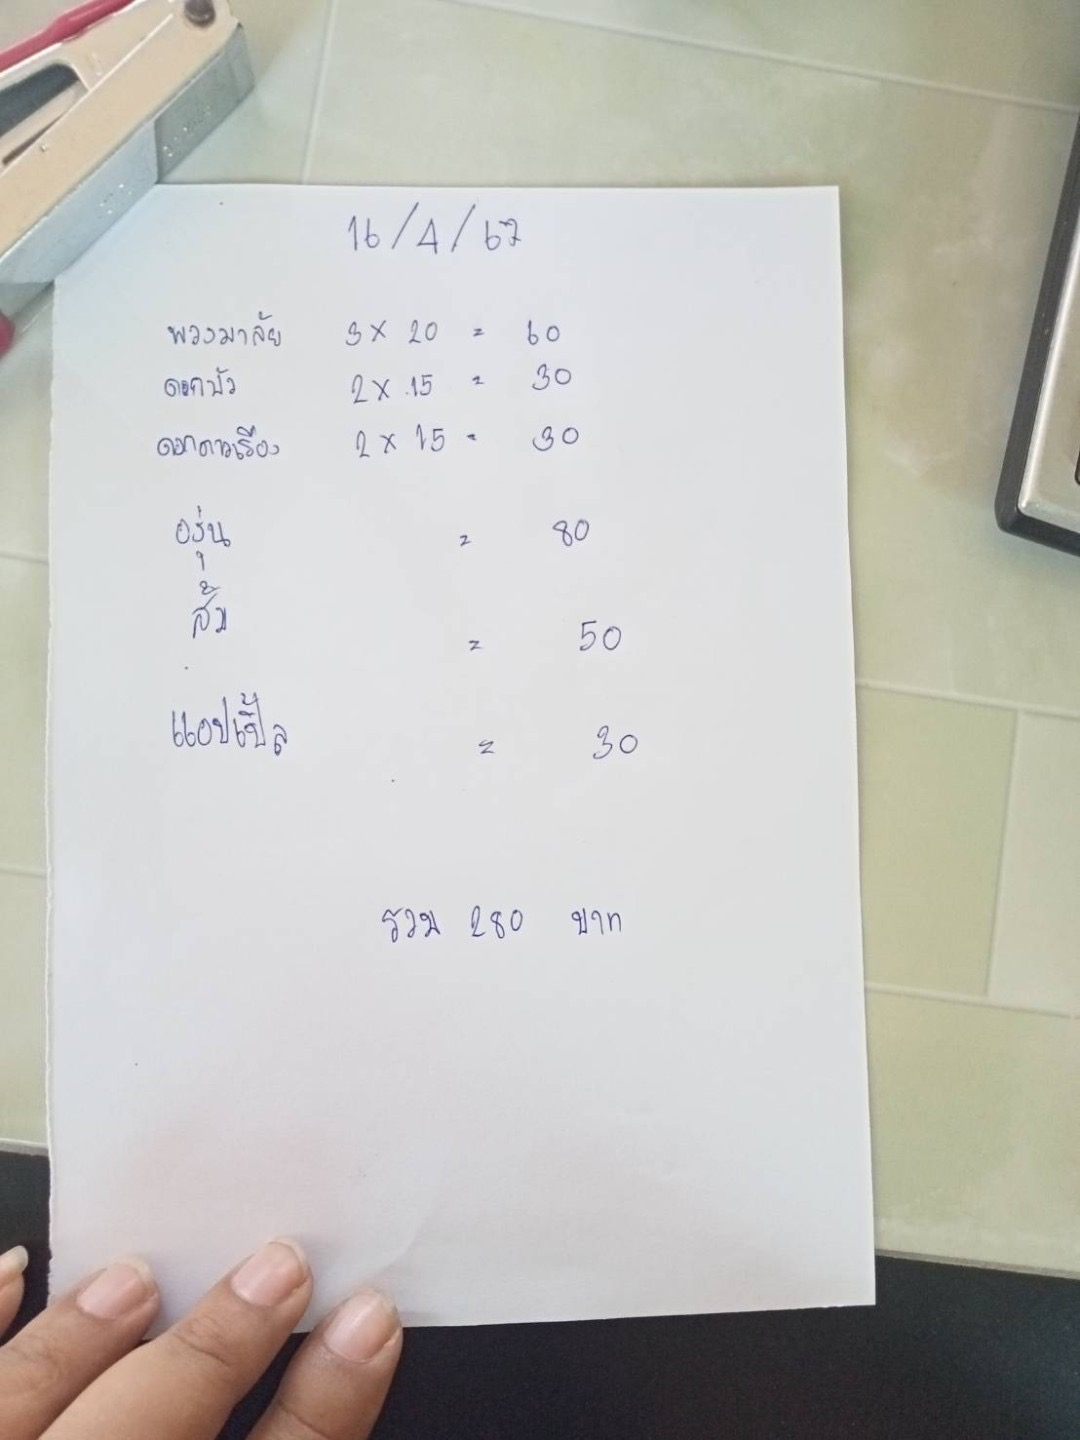 16/4/67
พวงมาลัย 3 x 20 = 60
ดอกบัว 2 x 15 = 30
ดอกดาวเรือง 2 x 15 = 30
องุ่น = 80
ส้ม = 50
แอปเปิ้ล = 30
รวม 280 บาท